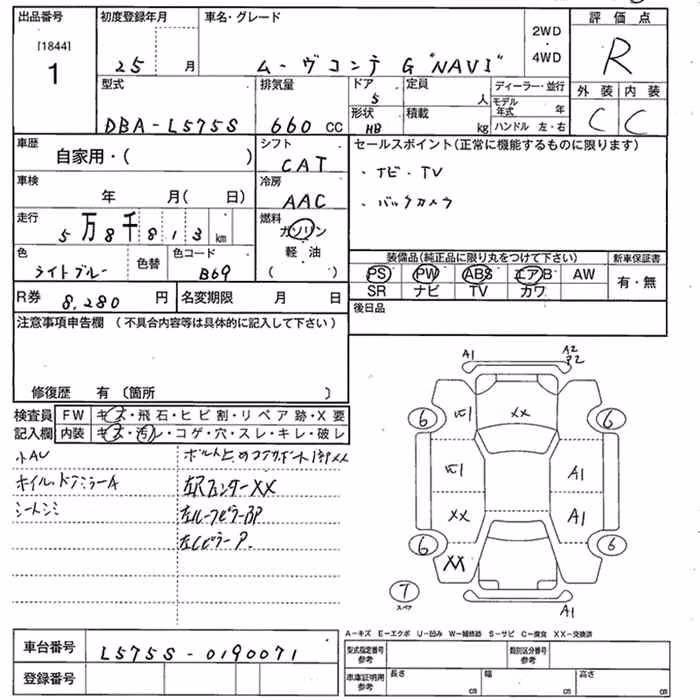 出品番号 初度登録年月 車名・グレード 評価点
[1844]
1
25 月 ムーヴコンテ G "NAVI" 2WD・4WD R
型式 排気量 ドア 定員 ディーラー・並行 外装 内装
DBA-L575S 660 CC 5 人 モデル年式 年 C C
形状 積載 ハンドル 左・右
HB kg
車歴 シフト セールスポイント(正常に機能するものに限ります)
自家用・( ) CAT ・ナビ・TV
車検 冷房 ・バックカメラ
年 月( 日) AAC
走行 燃料
5万8千813 km ガソリン
軽油
( )
色 色替 色コード 装備品(純正品に限り丸をつけて下さい) 新車保証書
ライトブルー B69 PS PW ABS エアB AW 有・無
SR ナビ TV カワ
R券 8,280 円 名変期限 月 日 後日品
注意事項申告欄 (不具合内容等は具体的に記入して下さい)
修復歴 有〔箇所 〕
検査員 FW キズ・飛石・ヒビ割・リペア跡・X要
記入欄 内装 キズ・汚レ・コゲ・穴・スレ・キレ・破レ
小AU
ホイル、ドアミラーA
シートシミ
XX
左Rフェンダー XX
左ルーフピラーBP
左Cピラー P.
A1 A2
P2
6 6
XX
A1
XX A1
6 6
XX
7
スペア
A1
A-キズ E-エクボ U-凹み W-補修跡 S-サビ C-腐食 XX-交換済
車台番号 L575S-0190071
登録番号
型式指定番号 参考 類別区分番号 参考
車庫証明用 参考 長さ cm 幅 cm 高さ cm